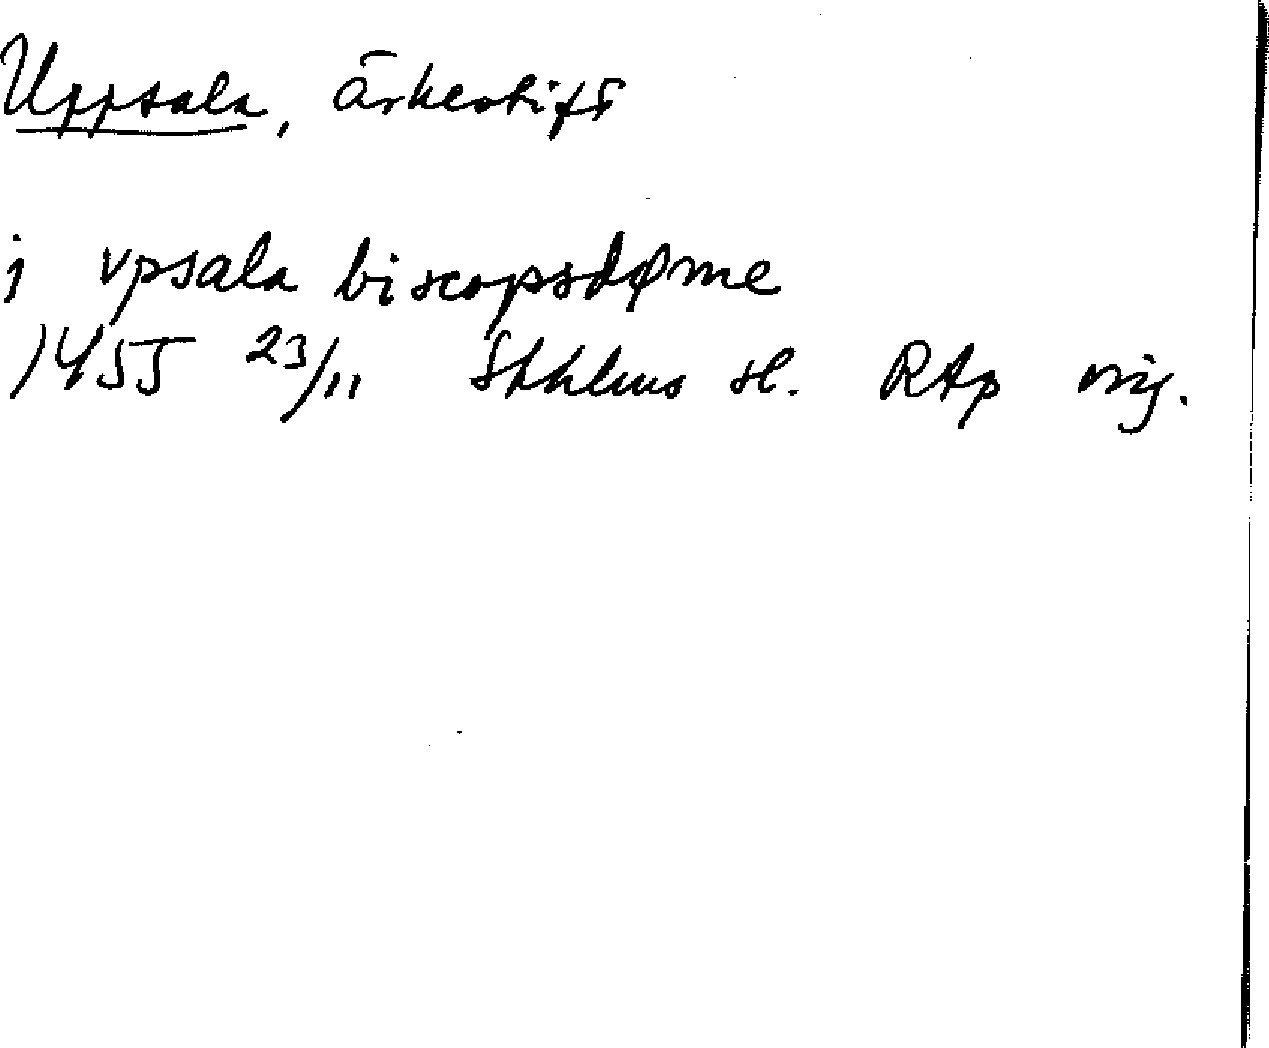 Uppsala, ärkestift
j vpsala biscopsdøme
1455 23/11 Sthlms sl. RAp orig.